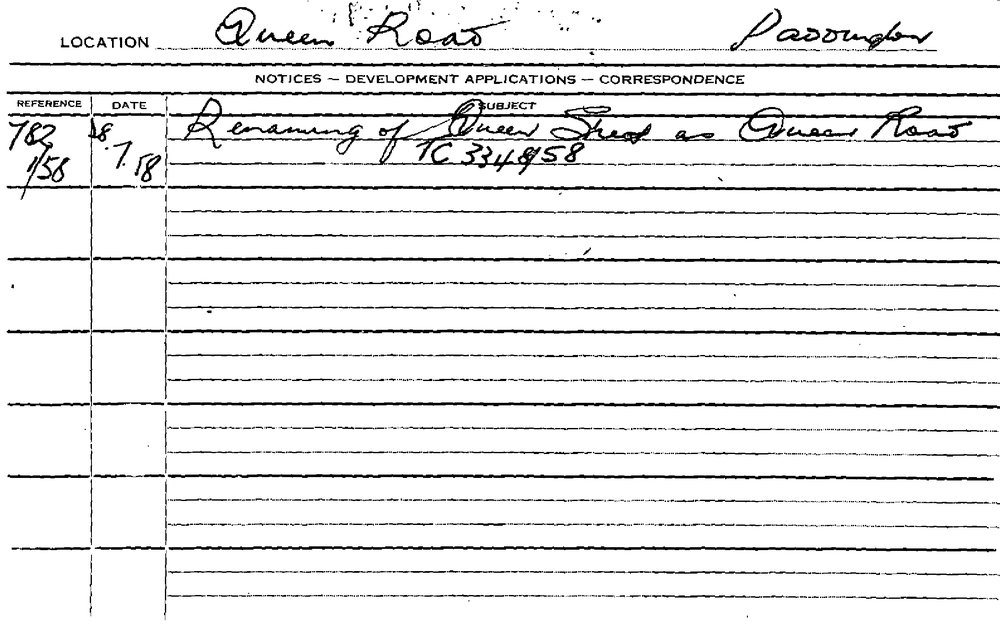 LOCATION Queen Road Paddington
NOTICES – DEVELOPMENT APPLICATIONS – CORRESPONDENCE
REFERENCE DATE SUBJECT
782 8 Renaming of Queen Street as Queen Road
/58 .7.58 TC 3348/58